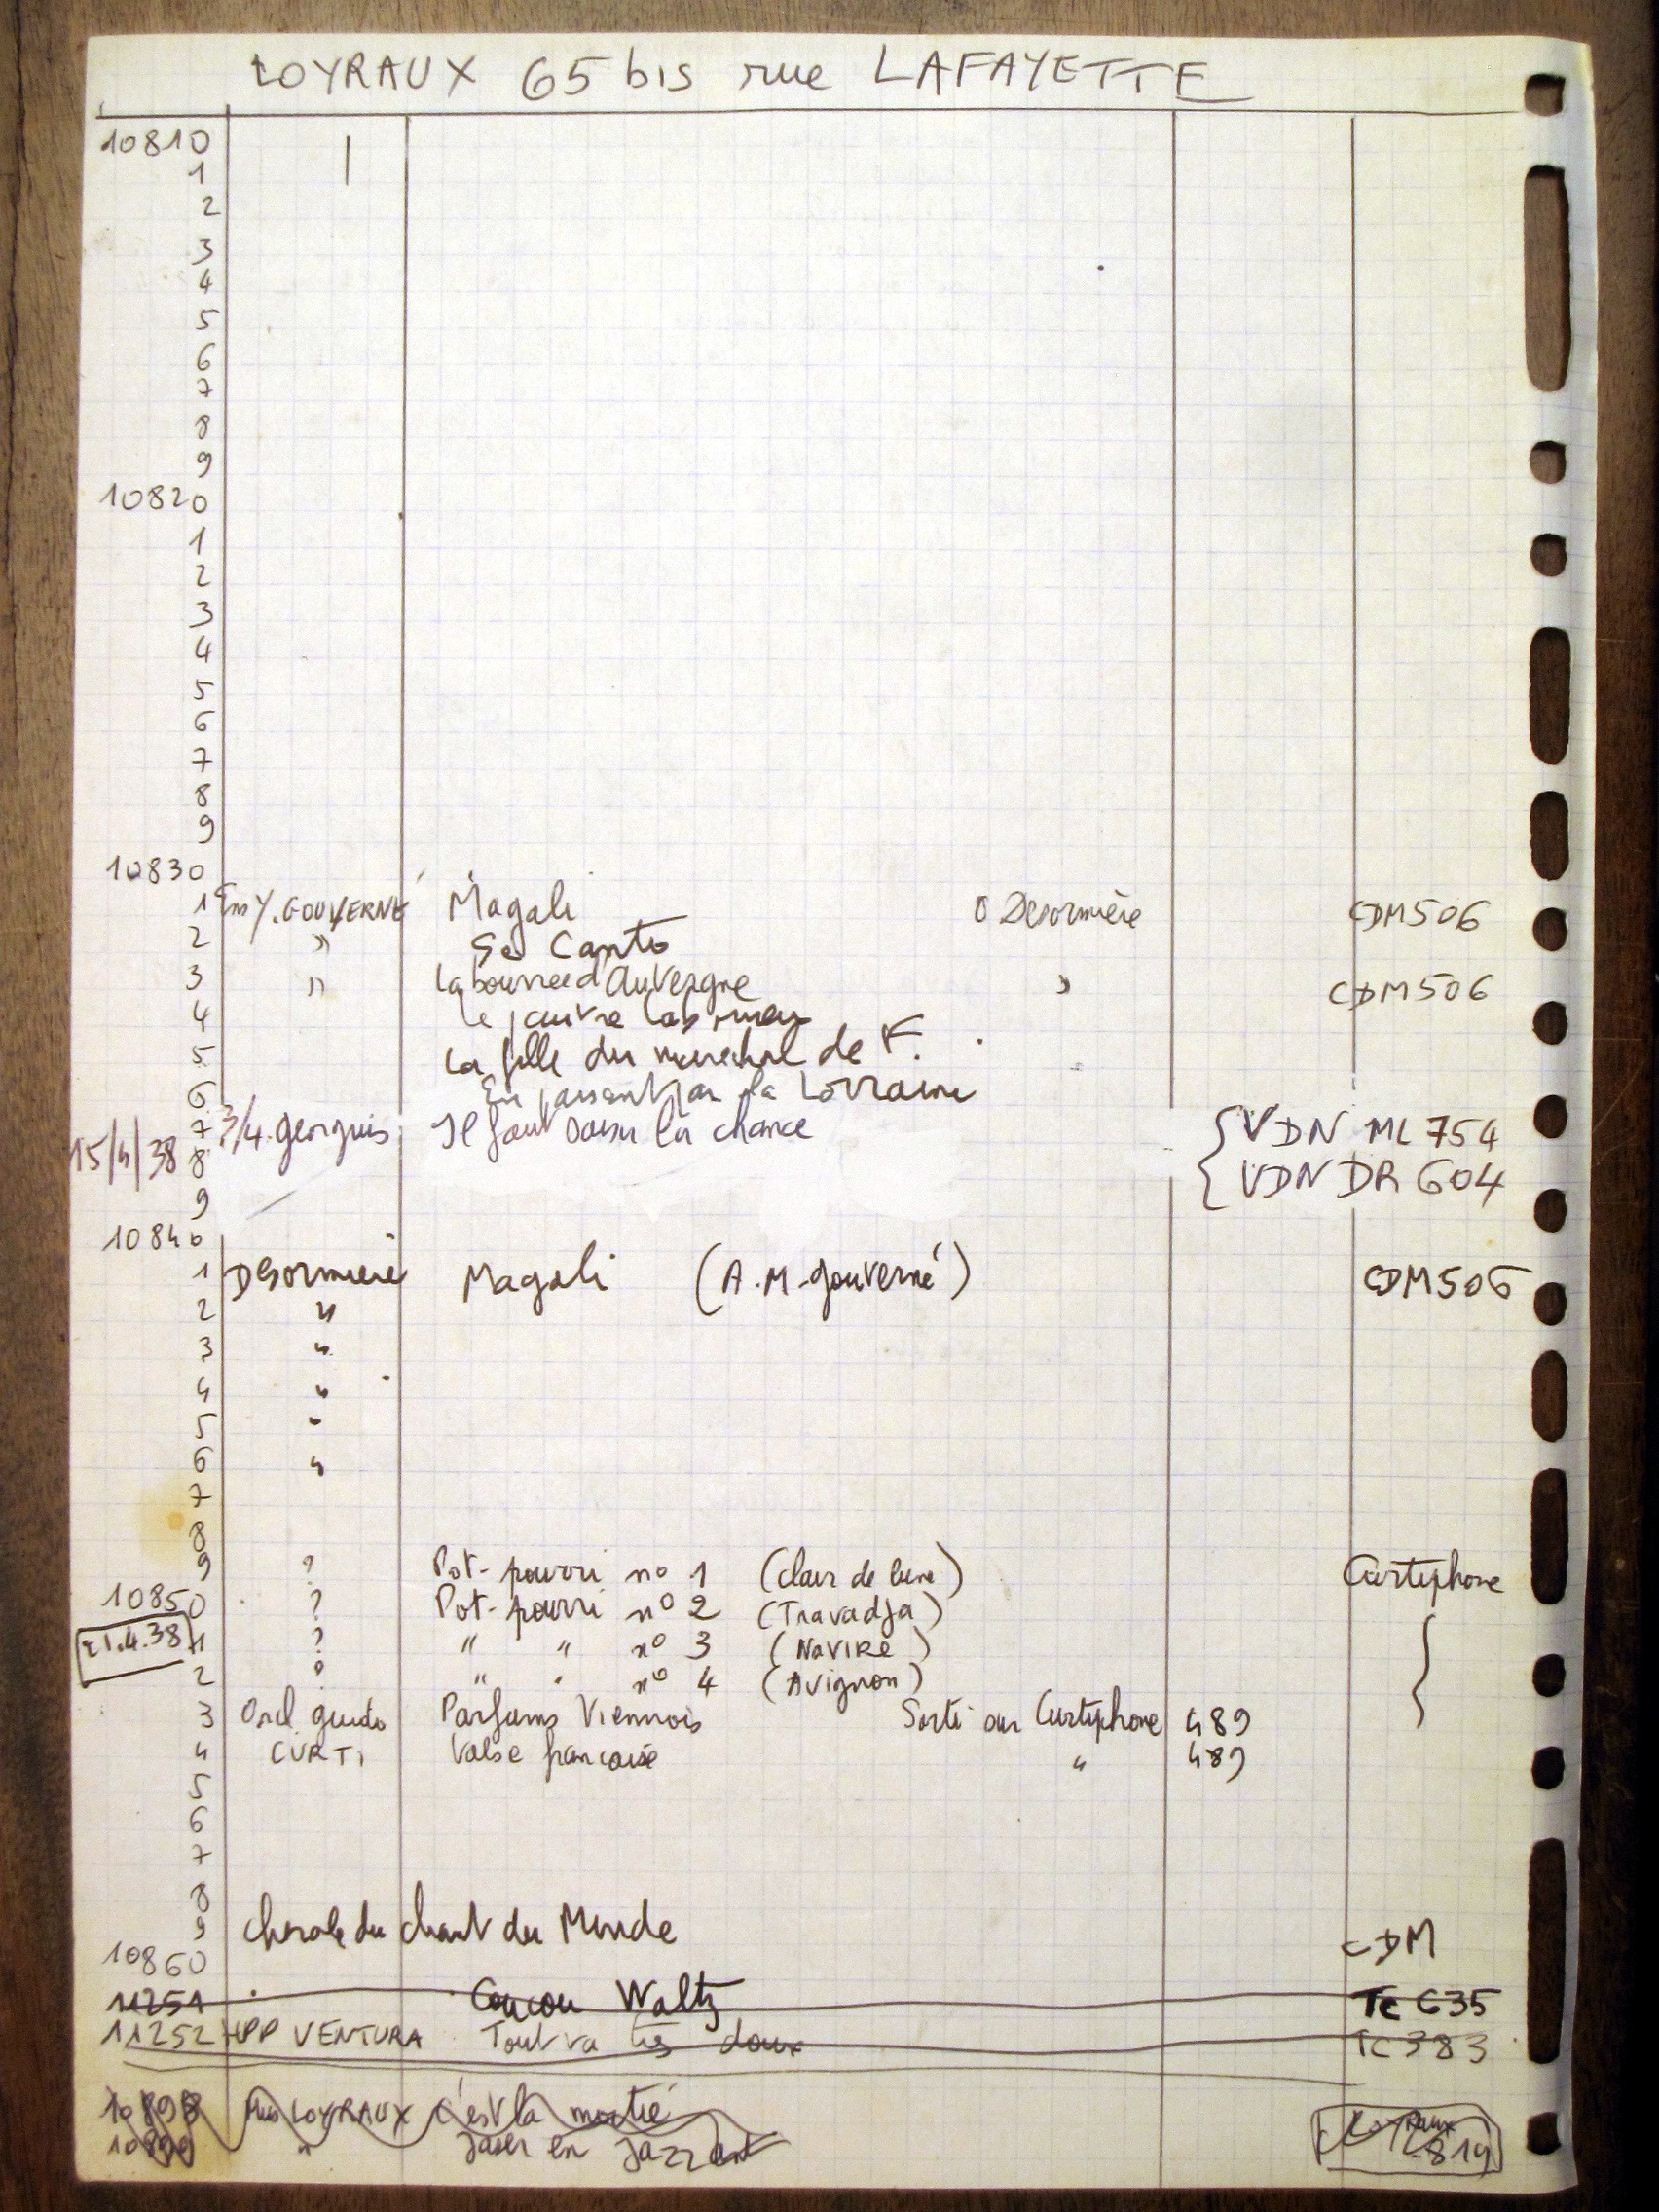 LOYRAUX 65 bis rue LAFAYETTE
10810
1
2
3
4
5
6
7
8
9
10820
1
2
3
4
5
6
7
8
9
10830
1 Y. GOUVERNÉ Magali O Desormière CDM506
2 " Se Canto
3 " La bourree d'Auvergne " CDM506
4 Le pauvre laboureur
5 La fille du marechal de F.
6 En passant par la Lorraine
7 3/4. georguis Il faut saisir la chance VDN ML 754
15/4/38 8 VDN DR 604
9
10840
1 Desormière Magali (A.M-gouverné) CDM506
2 "
3 "
4 "
5 "
6 "
7
8
9 ? Pot-pourri no 1 (clair de lune) Curtiphone
10850 ? Pot-pourri no 2 (Travadja)
21.4.38 1 ? " " no 3 (Navire)
2 ? " " no 4 (Avignon)
3 Orch. guido Parfums Viennois Sorti sur Curtiphone 489
4 CURTI Valse francaise " 489
5
6
7
8
9 Chorale du Chant du Monde
10860 CDM
11251 Coucou Waltz Tc 635
11252 HPP VENTURA Tout va tres doux Tc 383
10898 LOYRAUX C'est la moitié Loyraux
10899 " Jaser en Jazzant 819